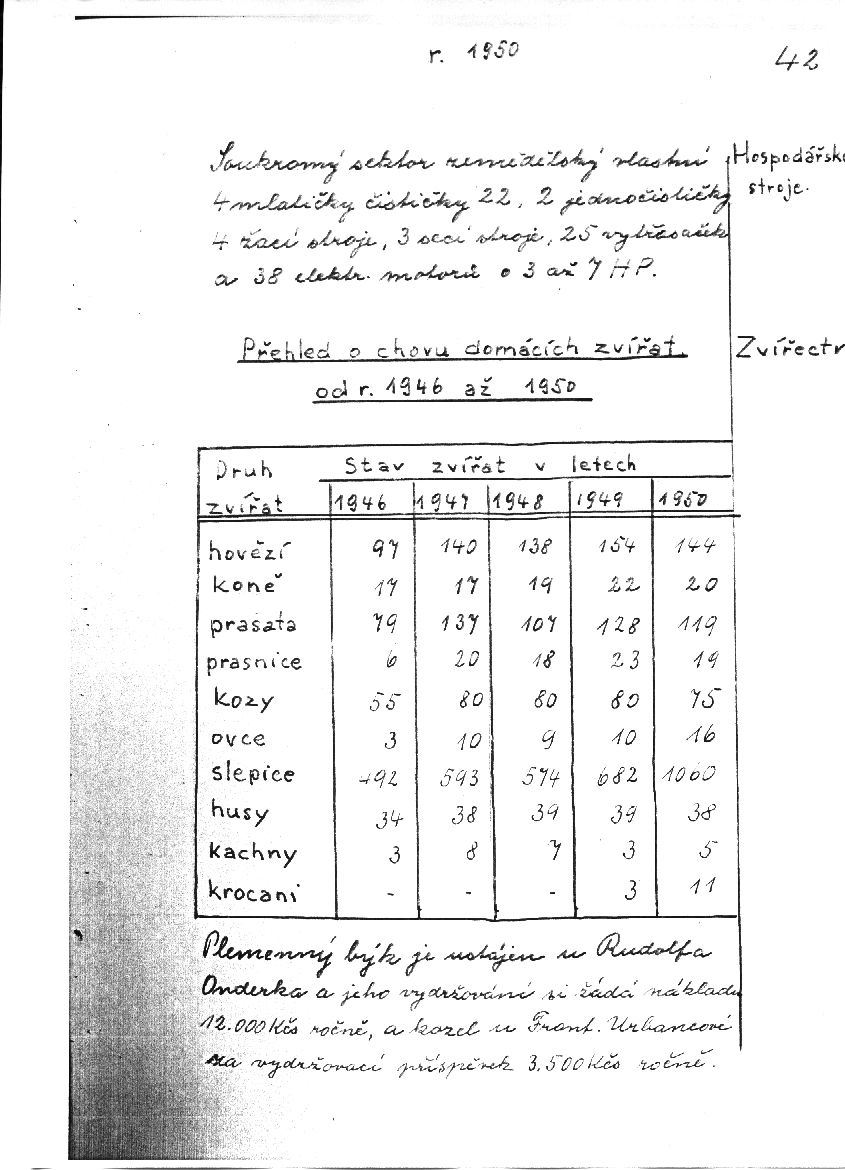 r. 1950
42
Soukromý sektor zemědělský vlastní
4 mlatičky čističky 22, 2 jednočističky
4 žací stroje, 3 secí stroje, 25 vytřasaček
a 38 elektr. motorů o 3 až 7 HP.
Hospodářsk
stroje.
Přehled o chovu domácích zvířat.
od r. 1946 až 1950
Zvířectv
Druh zvířat | Stav zvířat v letech
1946 1947 1948 1949 1950
hovězí 97 140 138 154 144
koně 17 17 19 22 20
prasata 79 137 107 128 119
prasnice 6 20 18 23 19
kozy 55 80 80 80 75
ovce 3 10 9 10 16
slepice 492 593 574 682 1060
husy 34 38 39 39 38
kachny 3 8 7 3 5
krocani - - - 3 11
Plemenný býk je ustájen u Rudolfa
Onderka a jeho vydržování si žádá nákladu
12.000 Kčs ročně, a kozel u Frant. Urbancové
za vydržovací příspěvek 3.500 Kčs ročně.